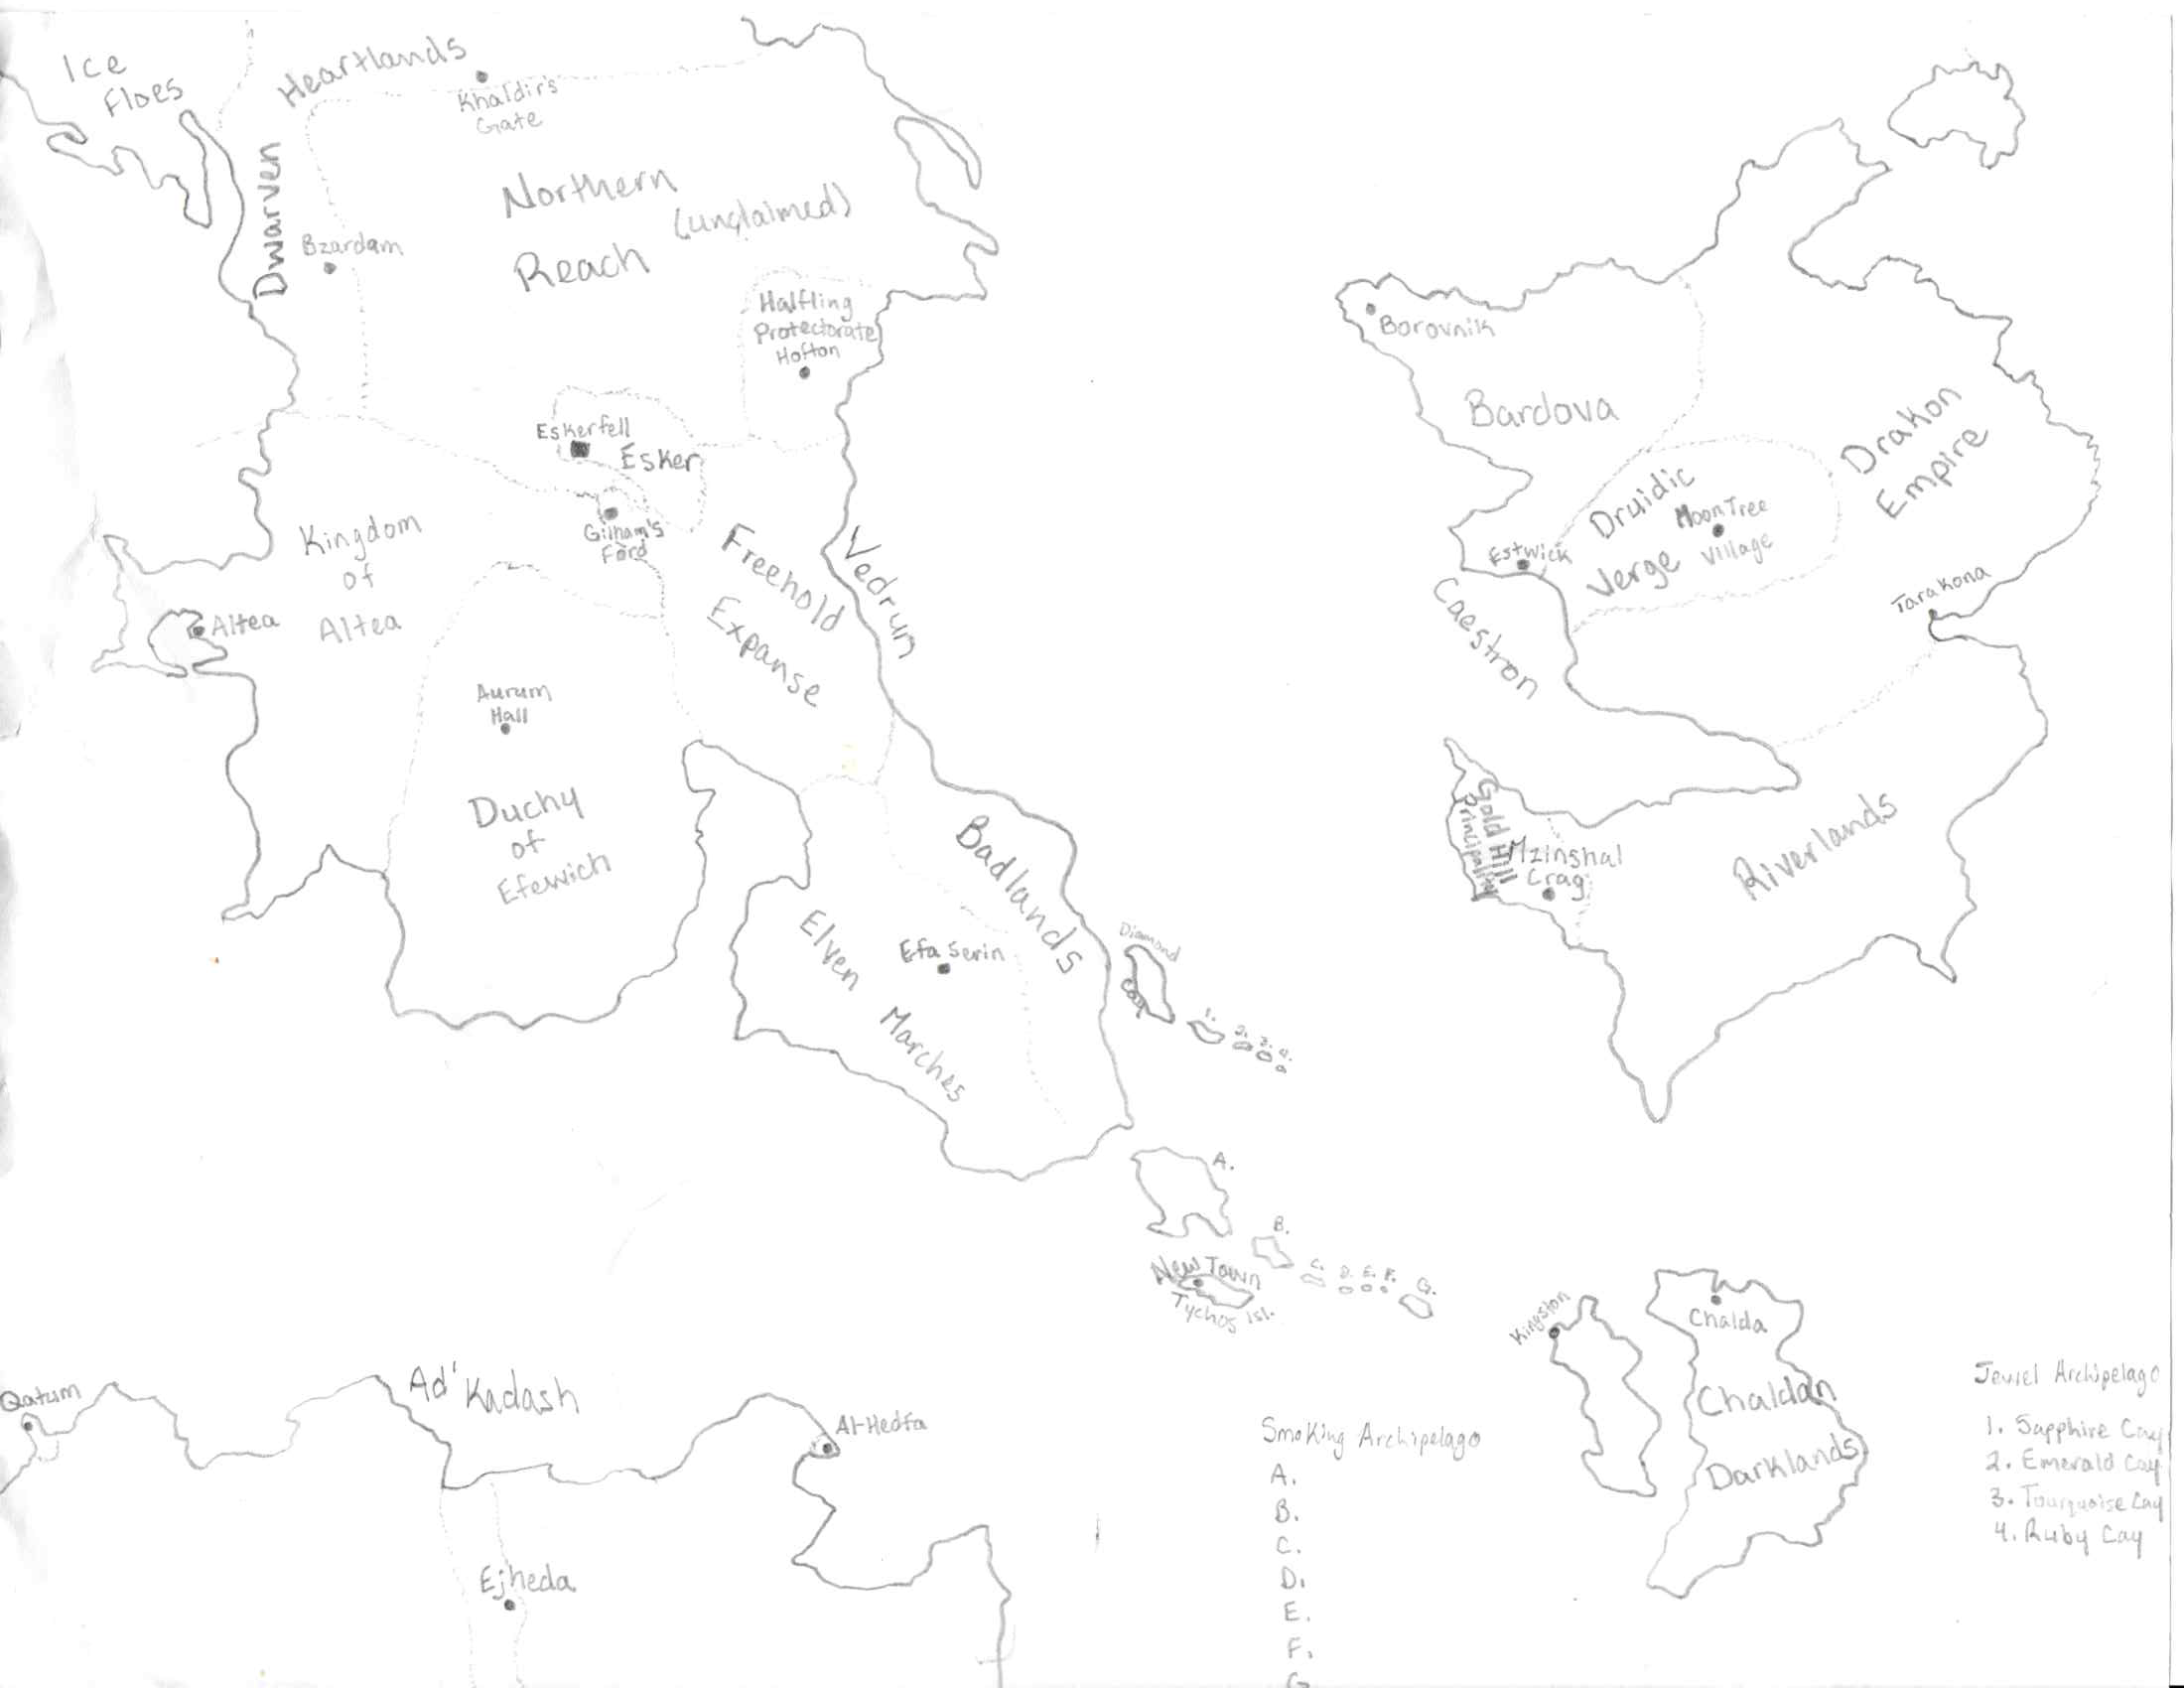 Ice
Floes
Dwarven
Heartlands
Khaldir's
Gate
Northern
Reach
(unclaimed)
Bzardam
Halfling
Protectorate
Hofton
Eskerfell
Esker
Gilham's
Ford
Kingdom
of
Altea
Altea
Freehold
Expanse
Vedrun
Aurum
Hall
Duchy
of
Efewich
Badlands
Elven
Marches
Efa Serin
Diamond
Cay
1.
2.
3.
4.
A.
B.
C.
D.
E.
F.
G.
New Town
Tychos Isl.
Borovnik
Bardova
Drakon
Empire
Druidic
Verge
Moon Tree
Village
Estwick
Caestron
Tarakona
Gold Hill
Principality
Mzinshal
Crag
Riverlands
Kingston
Chalda
Chaldan
Darklands
Qatum
Ad'Kadash
Al-Hedfa
Ejheda
Smoking Archipelago
A.
B.
C.
D.
E.
F.
G
Jewel Archipelago
1. Sapphire Cay
2. Emerald Cay
3. Tourquoise Cay
4. Ruby Cay